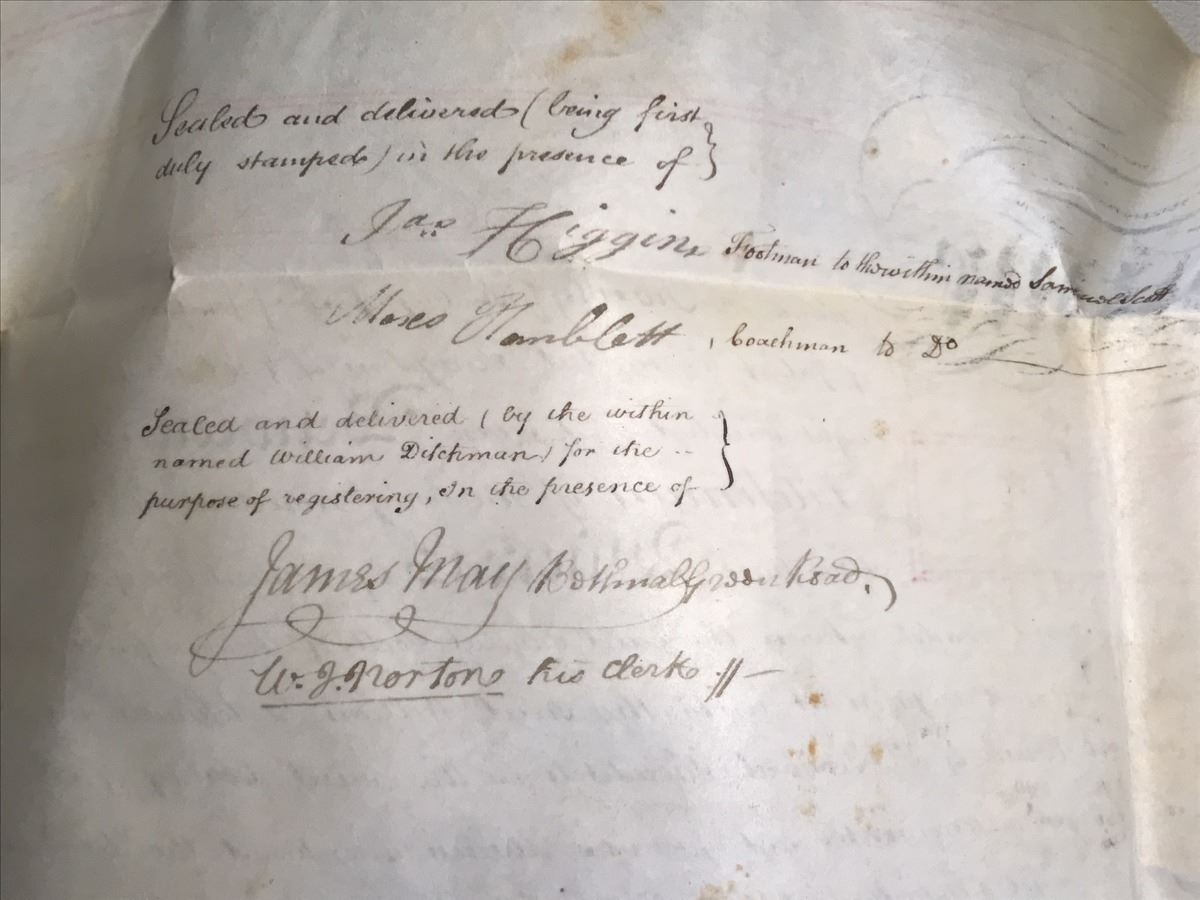 Sealed and delivered (being first
duly stamped) in the presence of
Jas. Higgins Footman to the within named Samuel Scott
Moses Hamblett, Coachman to Do
Sealed and delivered (by the within
named William Ditchman) for the
purpose of registering, In the presence of
James May Bethnal Green Road,
W. J. Norton his Clerk